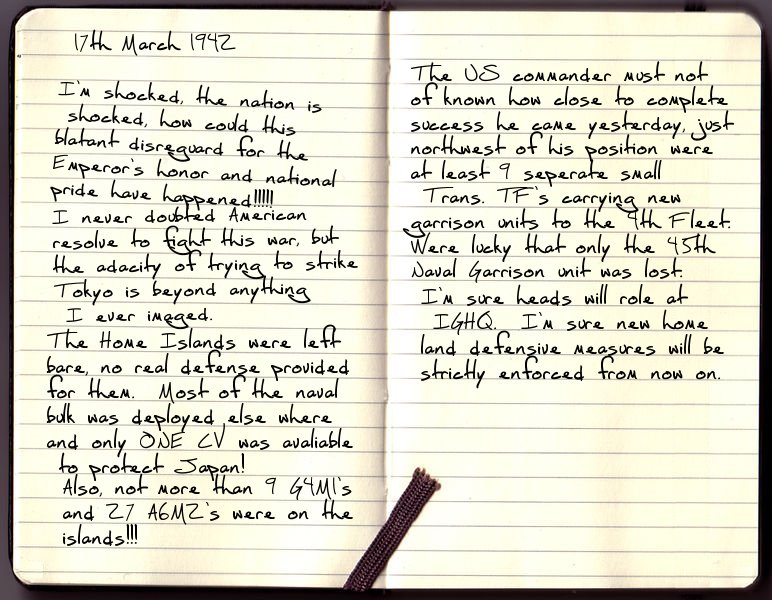 17th March 1942
I'm shocked, the nation is
shocked, how could this
blatant disreguard for the
Emperor's honor and national
pride have happened!!!!!
I never doubted American
resolve to fight this war, but
the adacity of trying to strike
Tokyo is beyond anything
I ever imaged.
The Home Islands were left
bare, no real defense provided
for them. Most of the naval
bulk was deployed else where
and only ONE CV was avaliable
to protect Japan!
Also, not more than 9 G4M1's
and 27 A6M2's were on the
islands!!!
The US commander must not
of known how close to complete
success he came yesterday, just
northwest of his position were
at least 9 seperate small
Trans. TF's carrying new
garrison units to the 9th Fleet.
Were lucky that only the 45th
Naval Garrison unit was lost.
I'm sure heads will role at
IGHQ. I'm sure new home
land defensive measures will be
strictly enforced from now on.